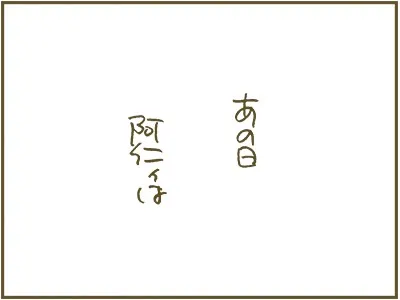 あの日
阿仁ィは